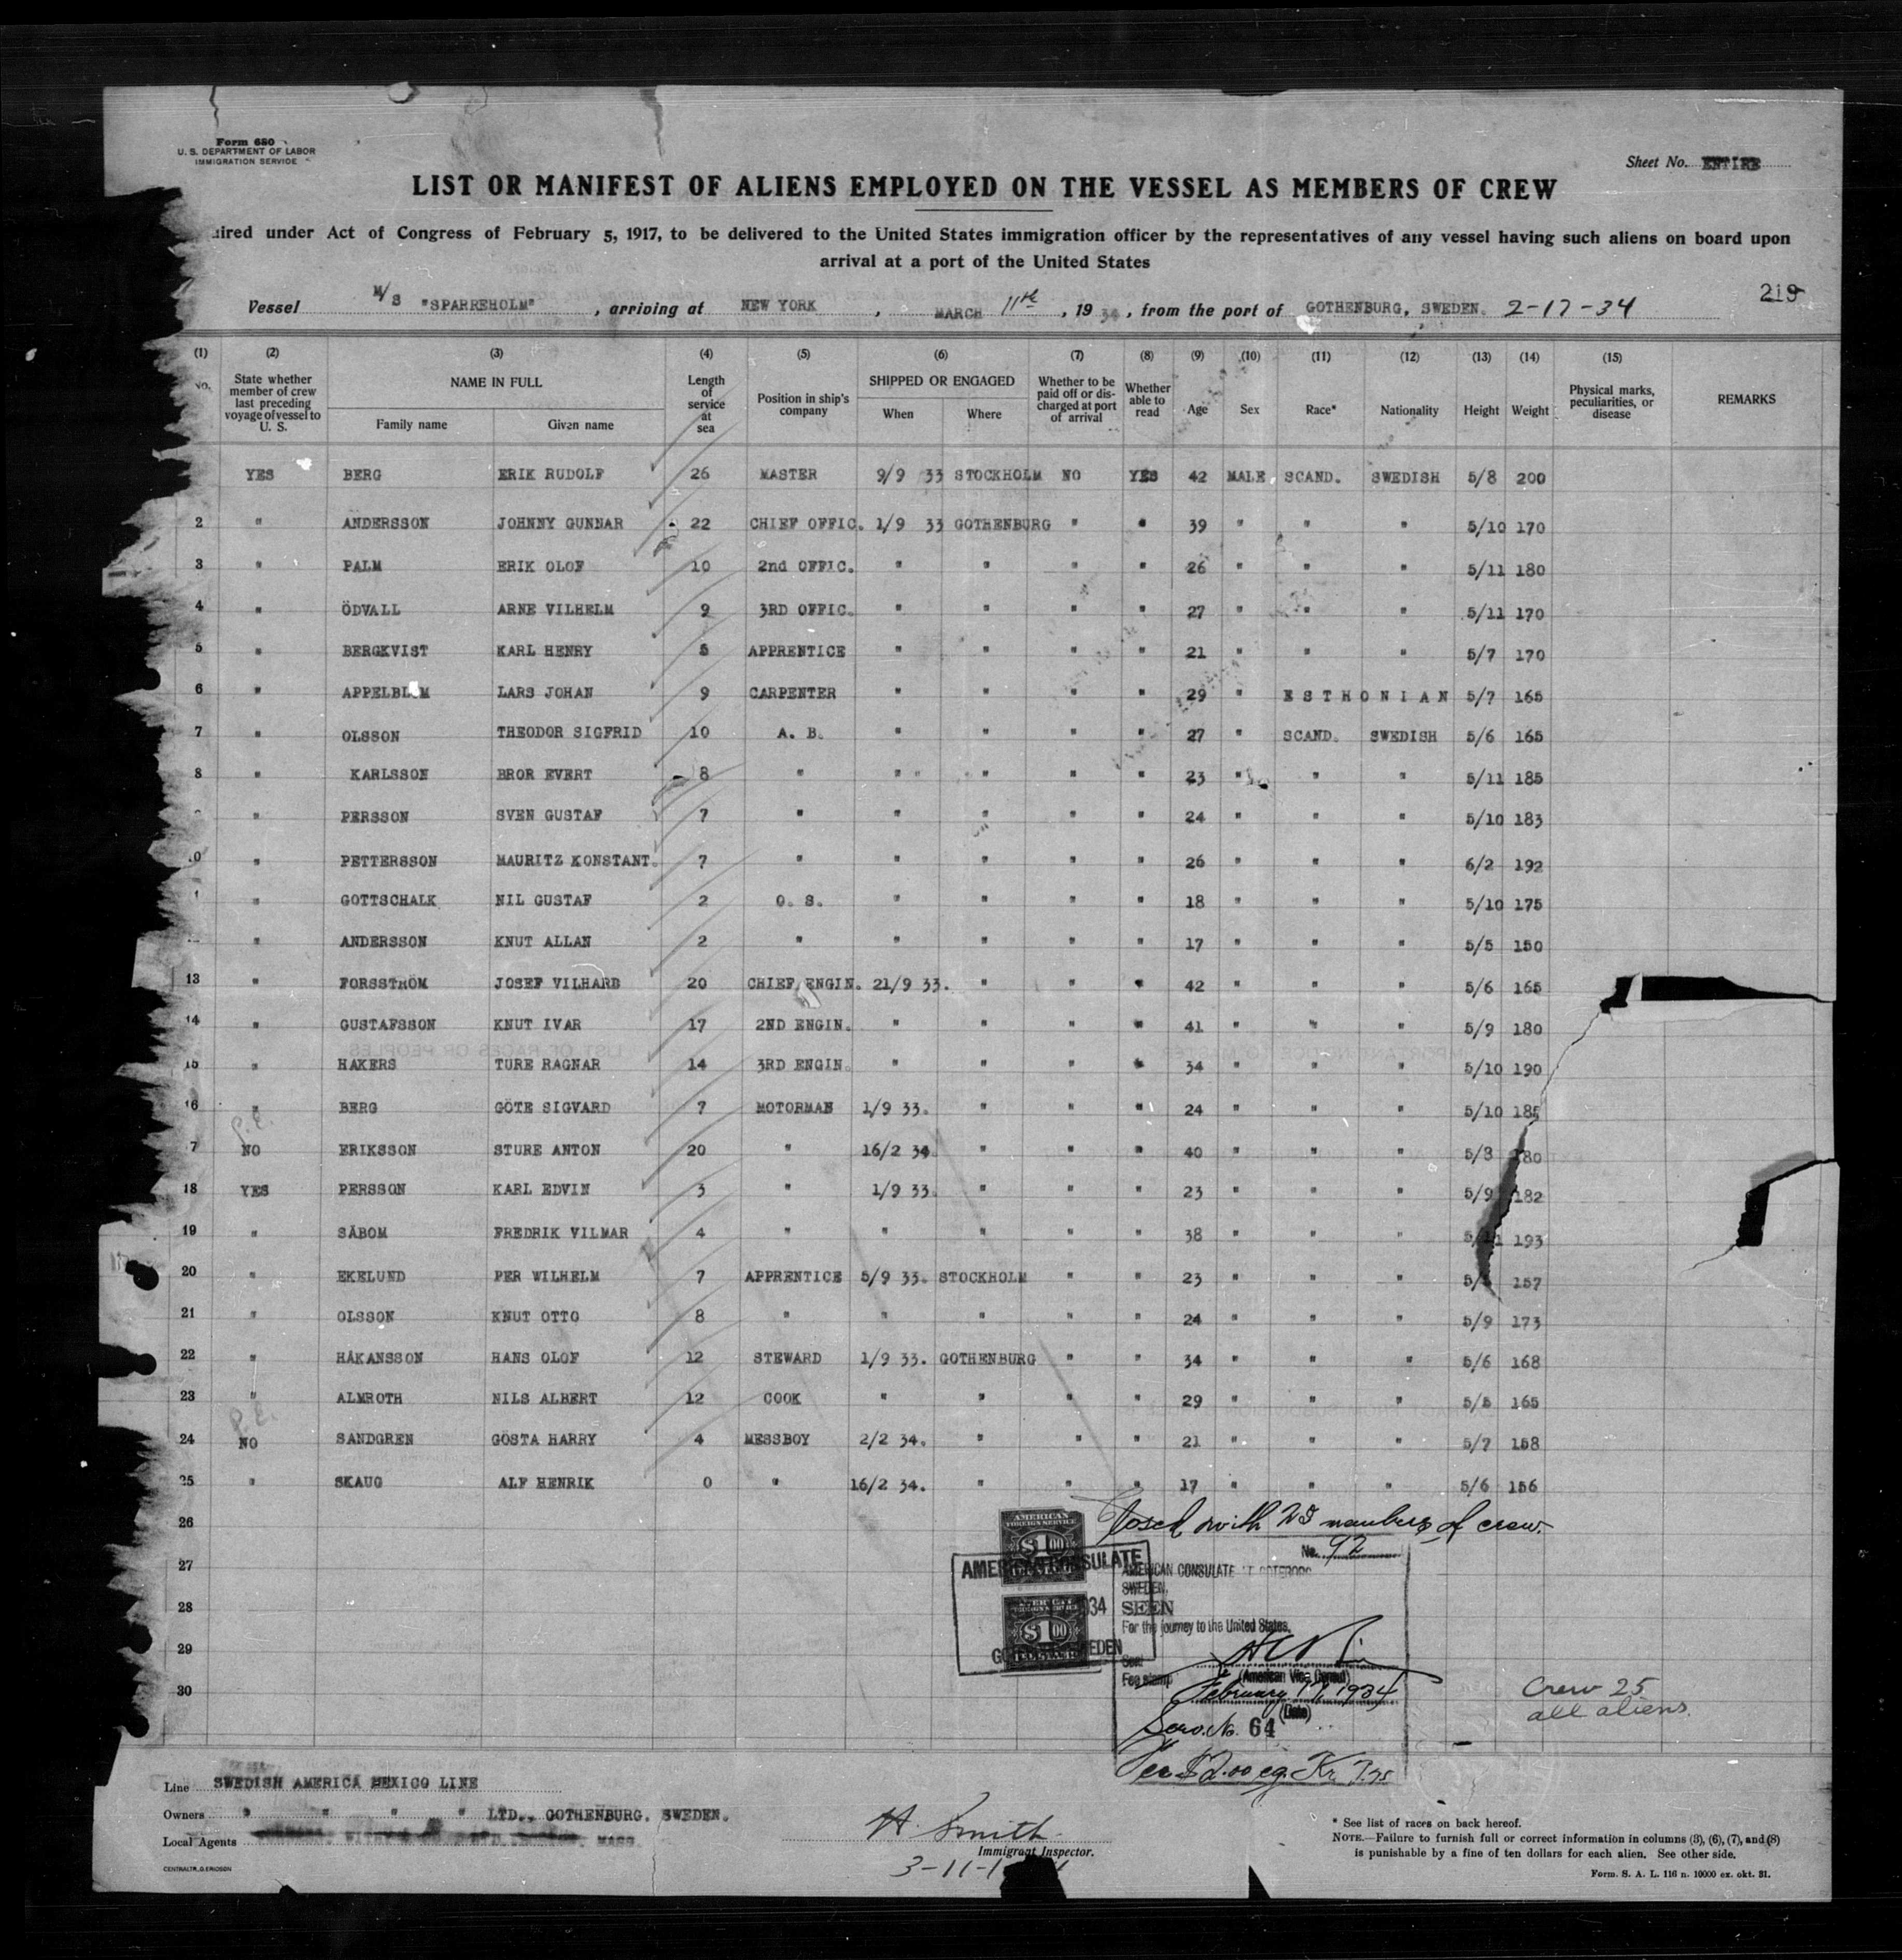 Form 680
U. S. DEPARTMENT OF LABOR
IMMIGRATION SERVICE
Sheet No. ENTIRE
LIST OR MANIFEST OF ALIENS EMPLOYED ON THE VESSEL AS MEMBERS OF CREW
uired under Act of Congress of February 5, 1917, to be delivered to the United States immigration officer by the representatives of any vessel having such aliens on board upon
arrival at a port of the United States
219
Vessel M/S "SPARREHOLM", arriving at NEW YORK, MARCH 11th, 1934, from the port of GOTHENBURG, SWEDEN. 2-17-34
(1) (2) (3) (4) (5) (6) (7) (8) (9) (10) (11) (12) (13) (14) (15)
No. State whether member of crew last preceding voyage of vessel to U. S. NAME IN FULL Family name Given name Length of service at sea Position in ship's company SHIPPED OR ENGAGED When Where Whether to be paid off or discharged at port of arrival Whether able to read Age Sex Race* Nationality Height Weight Physical marks, peculiarities, or disease REMARKS
YES BERG ERIK RUDOLF 26 MASTER 9/9 33 STOCKHOLM NO YES 42 MALE SCAND. SWEDISH 5/8 200
2 " ANDERSSON JOHNNY GUNNAR 22 CHIEF OFFIC. 1/9 33 GOTHENBURG " " 39 " " " 5/10 170
3 " PALM ERIK OLOF 10 2nd OFFIC. " " " " 26 " " " 5/11 180
4 " ÖDVALL ARNE VILHELM 9 3RD OFFIC. " " " " 27 " " " 5/11 170
5 " BERGKVIST KARL HENRY 5 APPRENTICE " " " " 21 " " " 5/7 170
6 " APPELBL M LARS JOHAN 9 CARPENTER " " " " 29 " ESTHONIAN 5/7 165
7 " OLSSON THEODOR SIGFRID 10 A. B. " " " " 27 " SCAND. SWEDISH 5/6 165
8 " KARLSSON BROR EVERT 8 " " " " " 23 " " " 5/11 185
" PERSSON SVEN GUSTAF 7 " " " " " 24 " " " 5/10 183
0 " PETTERSSON MAURITZ KONSTANT. 7 " " " " " 26 " " " 6/2 192
1 " GOTTSCHALK NIL GUSTAF 2 O. S. " " " " 18 " " " 5/10 175
" ANDERSSON KNUT ALLAN 2 " " " " " 17 " " " 5/5 150
13 " FORSSTRÖM JOSEF VILHARD 20 CHIEF ENGIN. 21/9 33. " " " 42 " " " 5/6 165
14 " GUSTAFSSON KNUT IVAR 17 2ND ENGIN. " " " " 41 " " " 5/9 180
15 " HAKERS TURE RAGNAR 14 3RD ENGIN. " " " " 34 " " " 5/10 190
16 " BERG GÖTE SIGVARD 7 MOTORMAN 1/9 33. " " " 24 " " " 5/10 185
P.E.
7 NO ERIKSSON STURE ANTON 20 " 16/2 34. " " " 40 " " " 5/3 180
18 YES PERSSON KARL EDVIN 3 " 1/9 33. " " " 23 " " " 5/9 182
19 " SÄBOM FREDRIK VILMAR 4 " " " " " 38 " " " 193
20 " EKELUND PER WILHELM 7 APPRENTICE 5/9 33. STOCKHOLM " " 23 " " " 5/ 157
21 " OLSSON KNUT OTTO 8 " " " " " 24 " " " 5/9 173
22 " HÅKANSSON HANS OLOF 12 STEWARD 1/9 33. GOTHENBURG " " 34 " " " 5/6 168
23 " ALMROTH NILS ALBERT 12 COOK " " " " 29 " " " 5/5 165
P.E.
24 NO SANDGREN GÖSTA HARRY 4 MESSBOY 2/2 34. " " " 21 " " " 5/7 158
25 " SKAUG ALF HENRIK 0 " 16/2 34. " " " 17 " " " 5/6 156
26
27
28
29
30
Closed with 25 members of crew.
No. 92
AMERICAN FOREIGN SERVICE
$1.00
AMERICAN CONSULATE
$1.00
AMERICAN CONSULATE AT GOTEBORG
SWEDEN.
SEEN
For the journey to the United States.
Seal
Fee stamp
(American Vice Consul)
February 17, 1934
(Date)
Serv. No. 64
Fee $2.00 eq. Kr.
Crew 25
all aliens.
Line SWEDISH AMERICA MEXICO LINE
Owners " " " " LTD., GOTHENBURG, SWEDEN.
Local Agents MASS.
CENTRALTR. G. ERICSON
H. Smith
Immigrant Inspector.
3-11-1
* See list of races on back hereof.
NOTE.—Failure to furnish full or correct information in columns (3), (6), (7), and (8)
is punishable by a fine of ten dollars for each alien. See other side.
Form. S. A. L. 116 n. 10000 ex. okt. 31.